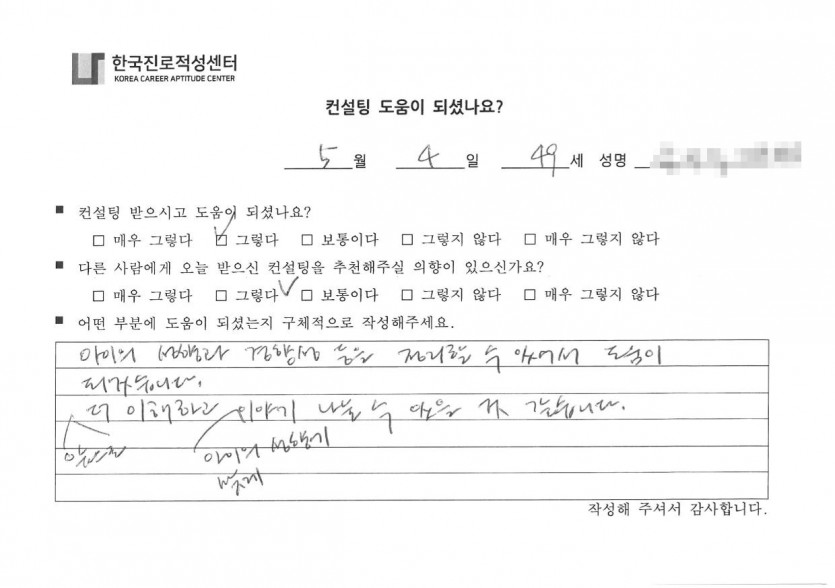 한국진로적성센터
KOREA CAREER APTITUDE CENTER
컨설팅 도움이 되셨나요?
5 월 4 일 49 세 성명
■ 컨설팅 받으시고 도움이 되셨나요?
□ 매우 그렇다 □ 그렇다 □ 보통이다 □ 그렇지 않다 □ 매우 그렇지 않다
■ 다른 사람에게 오늘 받으신 컨설팅을 추천해주실 의향이 있으신가요?
□ 매우 그렇다 □ 그렇다 □ 보통이다 □ 그렇지 않다 □ 매우 그렇지 않다
■ 어떤 부분에 도움이 되셨는지 구체적으로 작성해주세요.
아이의 성향과 경향성 등을 정리할 수 있어서 도움이
더 이해하고 이야기 나눌 수 있을 것 같습니다.
앞으로 아이의 성향에
맞게
작성해 주셔서 감사합니다.